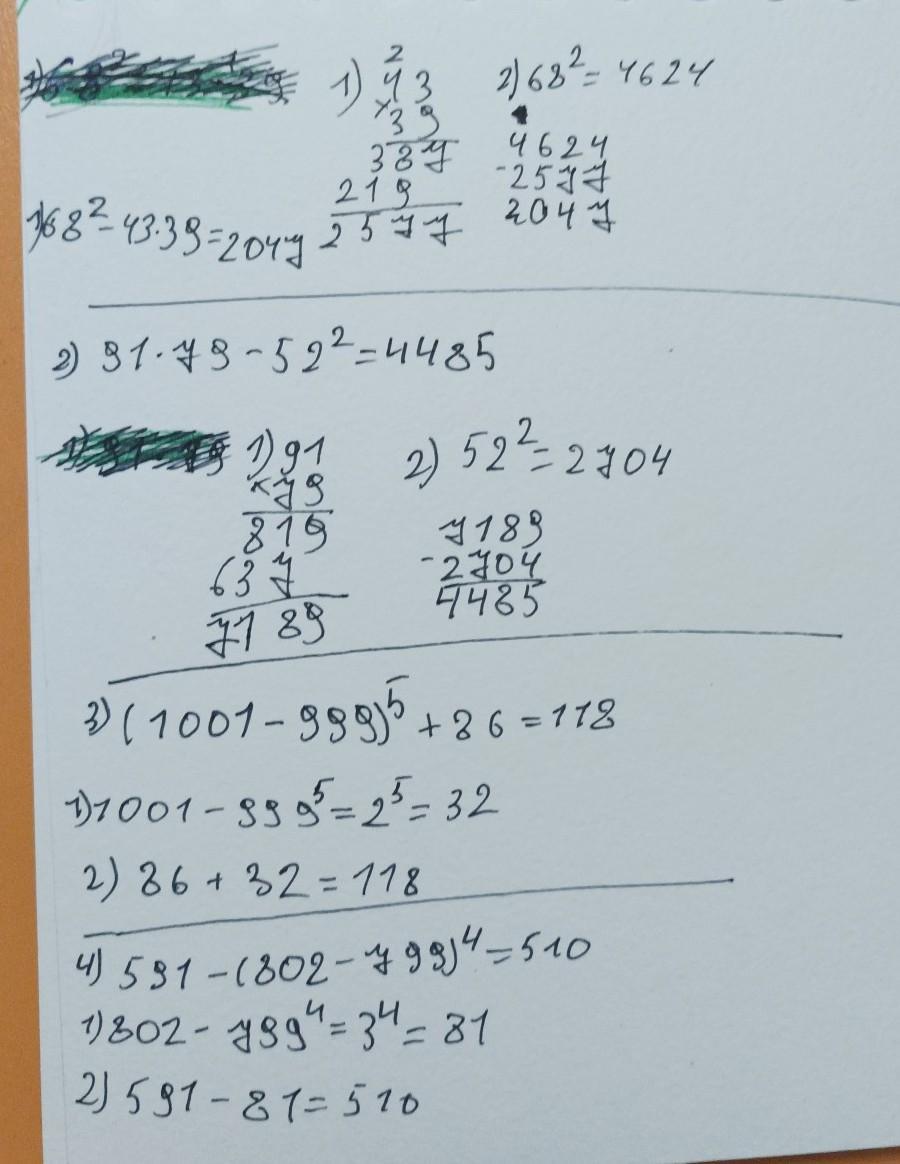 2
1) 43
× 39
387
219
2577
2) 68² = 4624
4624
- 2577
2047
1) 68² - 43·39 = 2047
2) 91·79 - 52² = 4485
1) 91
× 79
819
637
7189
2) 52² = 2704
7189
- 2704
4485
3) (1001 - 999)⁵ + 86 = 118
1) 1001 - 999⁵ = 2⁵ = 32
2) 86 + 32 = 118
4) 591 - (802 - 799)⁴ = 510
1) 802 - 799⁴ = 3⁴ = 81
2) 591 - 81 = 510